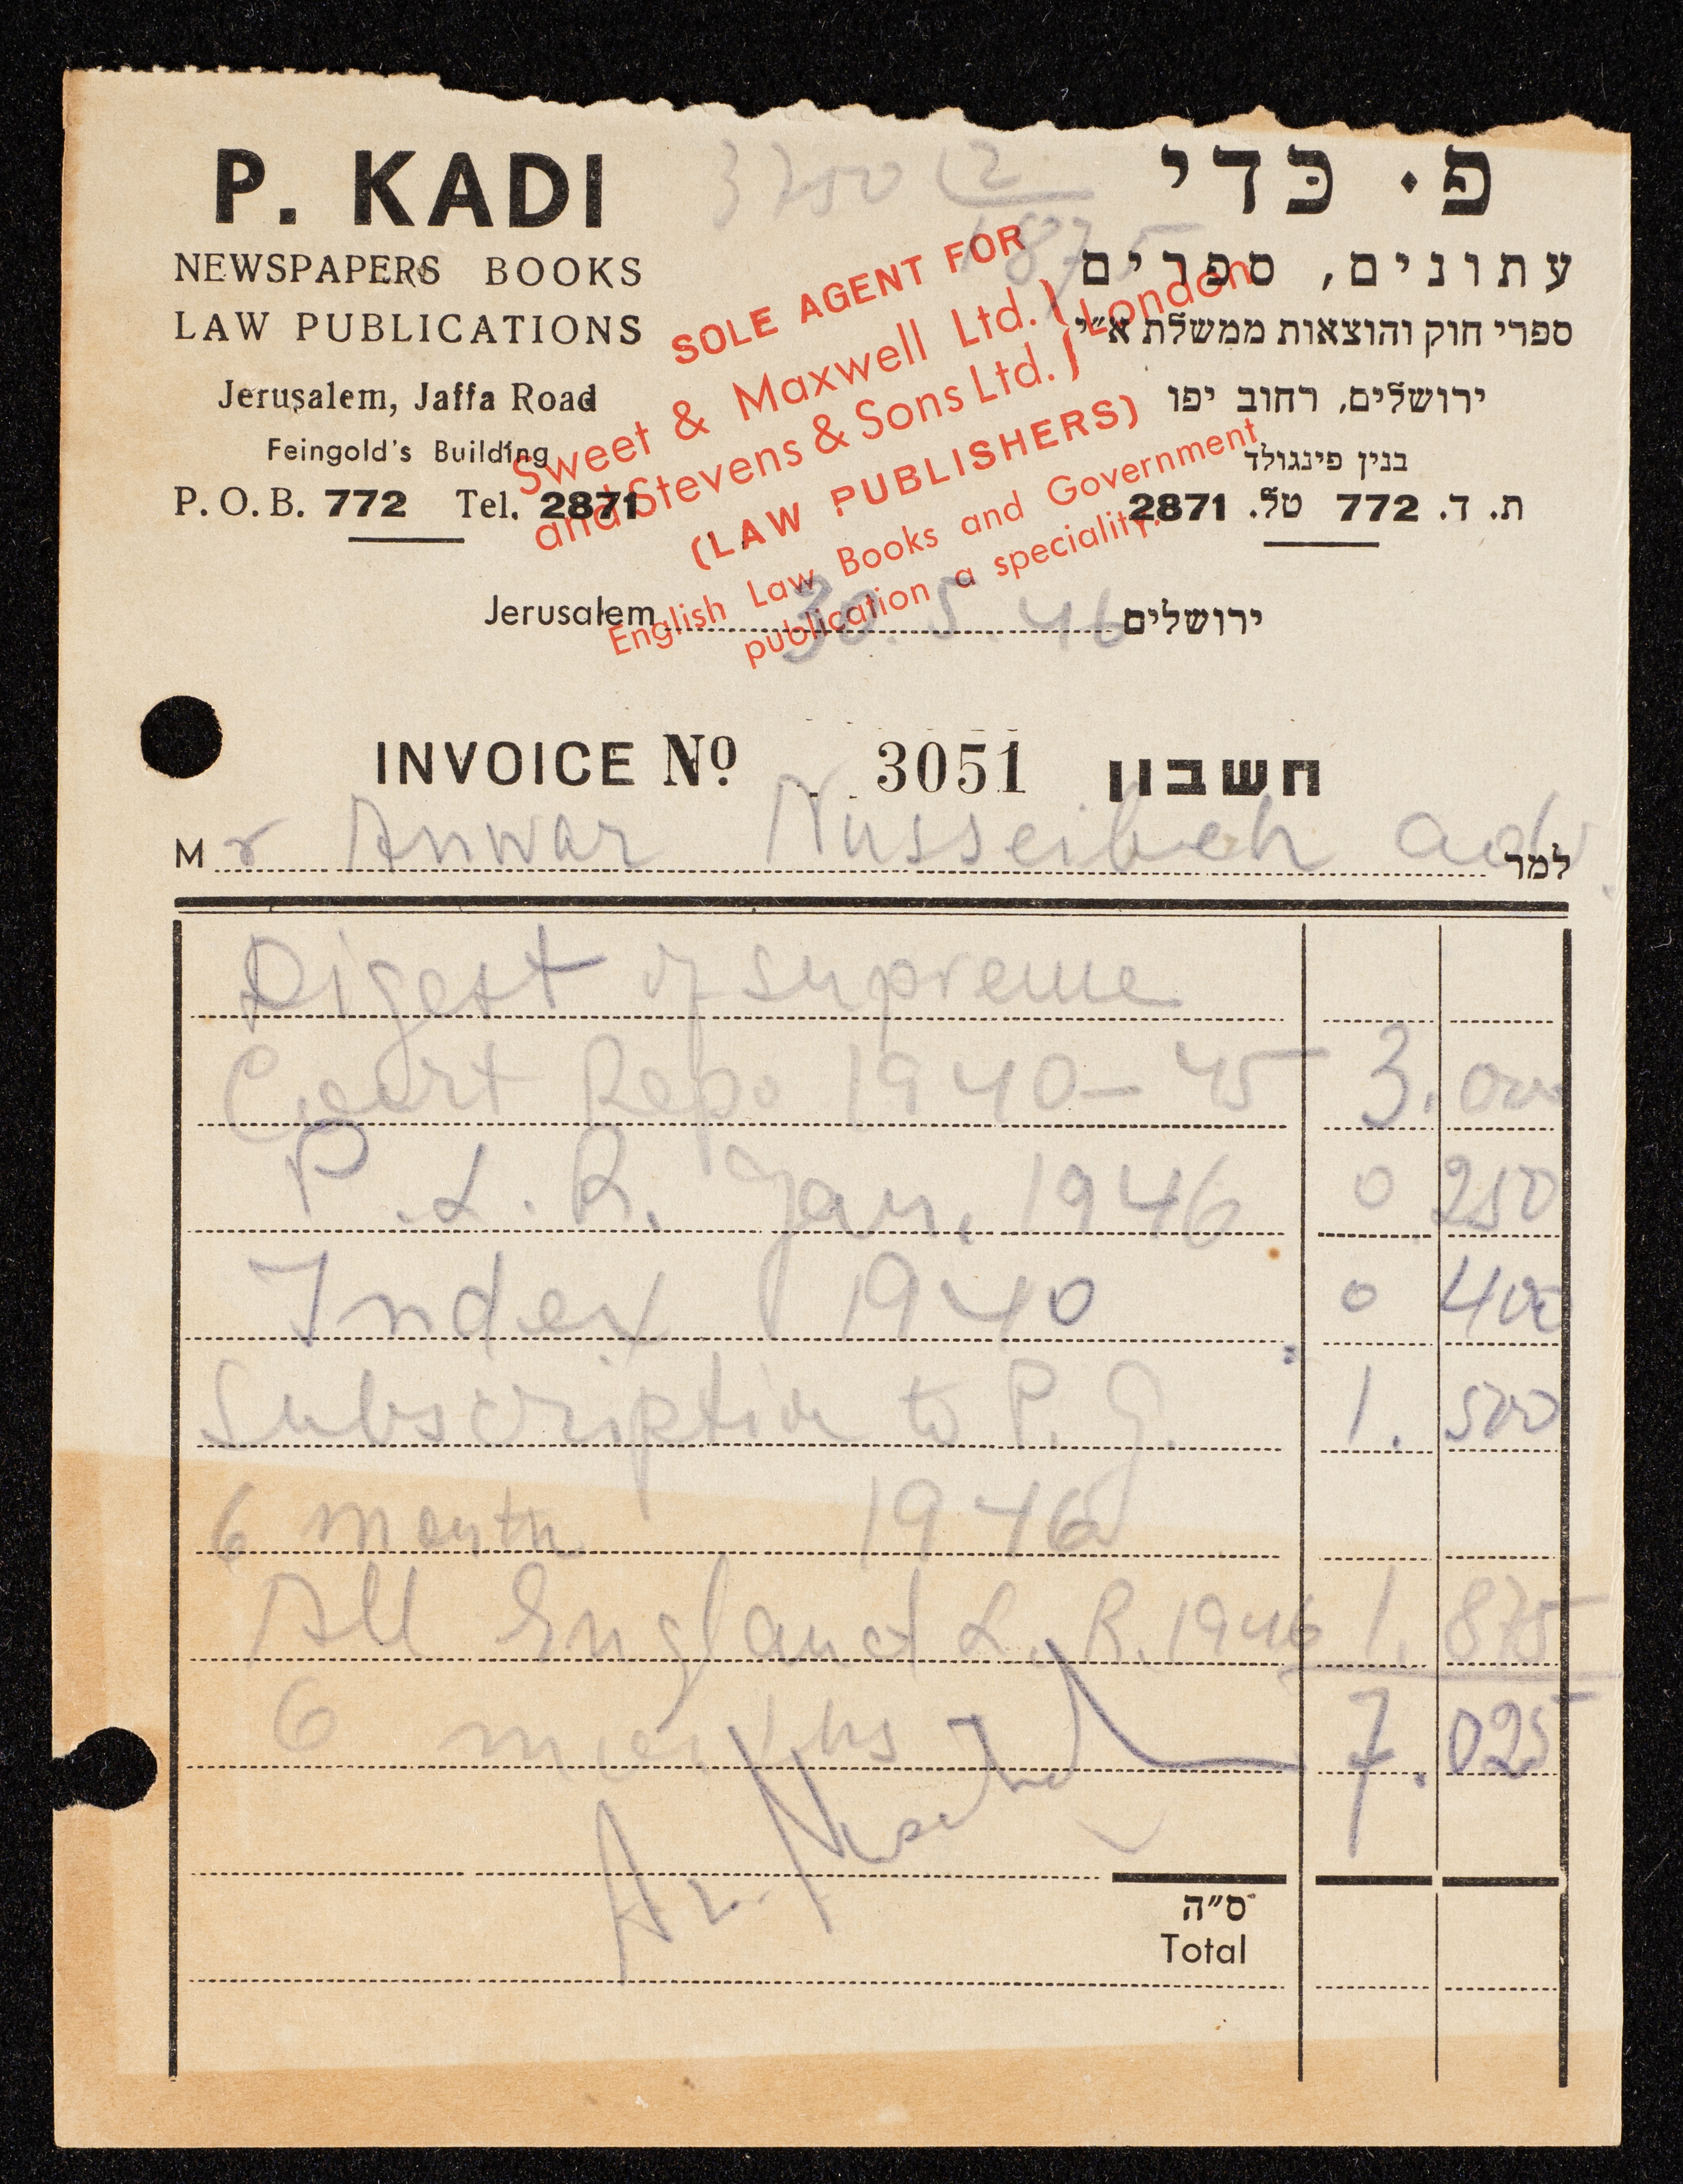 3750 2
1875
P. KADI
NEWSPAPERS BOOKS
LAW PUBLICATIONS
Jerusalem, Jaffa Road
Feingold's Building
P.O.B. 772 Tel. 2871
פ. כדי
עתונים, ספרים
ספרי חוק והוצאות ממשלת א״י
ירושלים, רחוב יפו
בנין פינגולד
ת. ד. 772 טל. 2871
SOLE AGENT FOR
Sweet & Maxwell Ltd. } London
and Stevens & Sons Ltd. }
(LAW PUBLISHERS)
English Law Books and Government
publication a speciality.
Jerusalem 30. 5. 46 ירושלים
INVOICE Nº 3051 חשבון
Mr Anwar Nusseibeh adv. למר
Digest of supreme
Court Rep. 1940-45 3. 000
P.L.R. Jan. 1946 0 250
Index 1940 0 400
Subscription to P.G. 1. 500
6 month 1946
All England L.R. 1946 1. 875
6 months 7. 025
ס״ה
Total